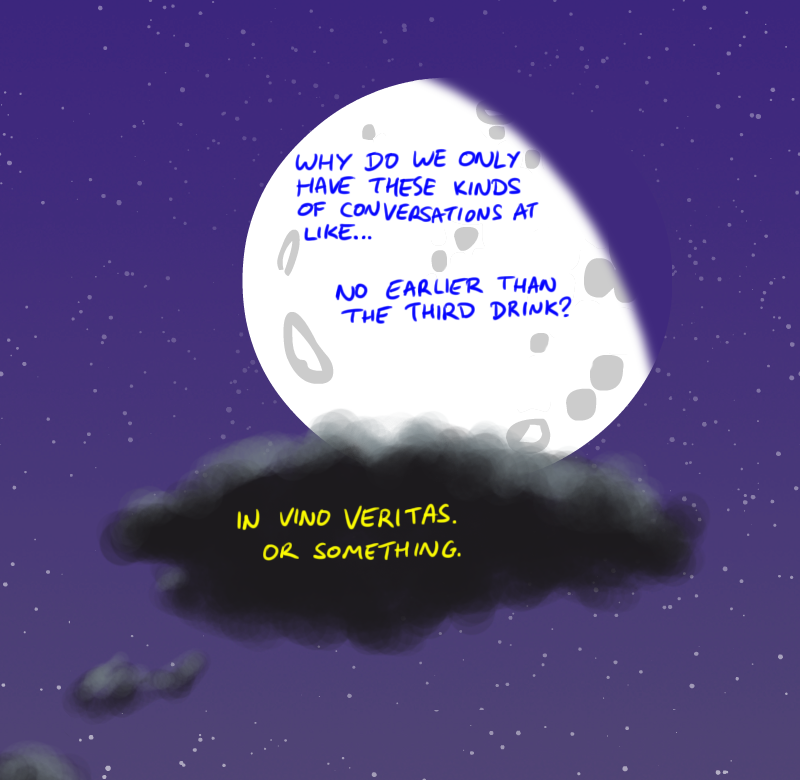 WHY DO WE ONLY
HAVE THESE KINDS
OF CONVERSATIONS AT
LIKE...
NO EARLIER THAN
THE THIRD DRINK?
IN VINO VERITAS.
OR SOMETHING.